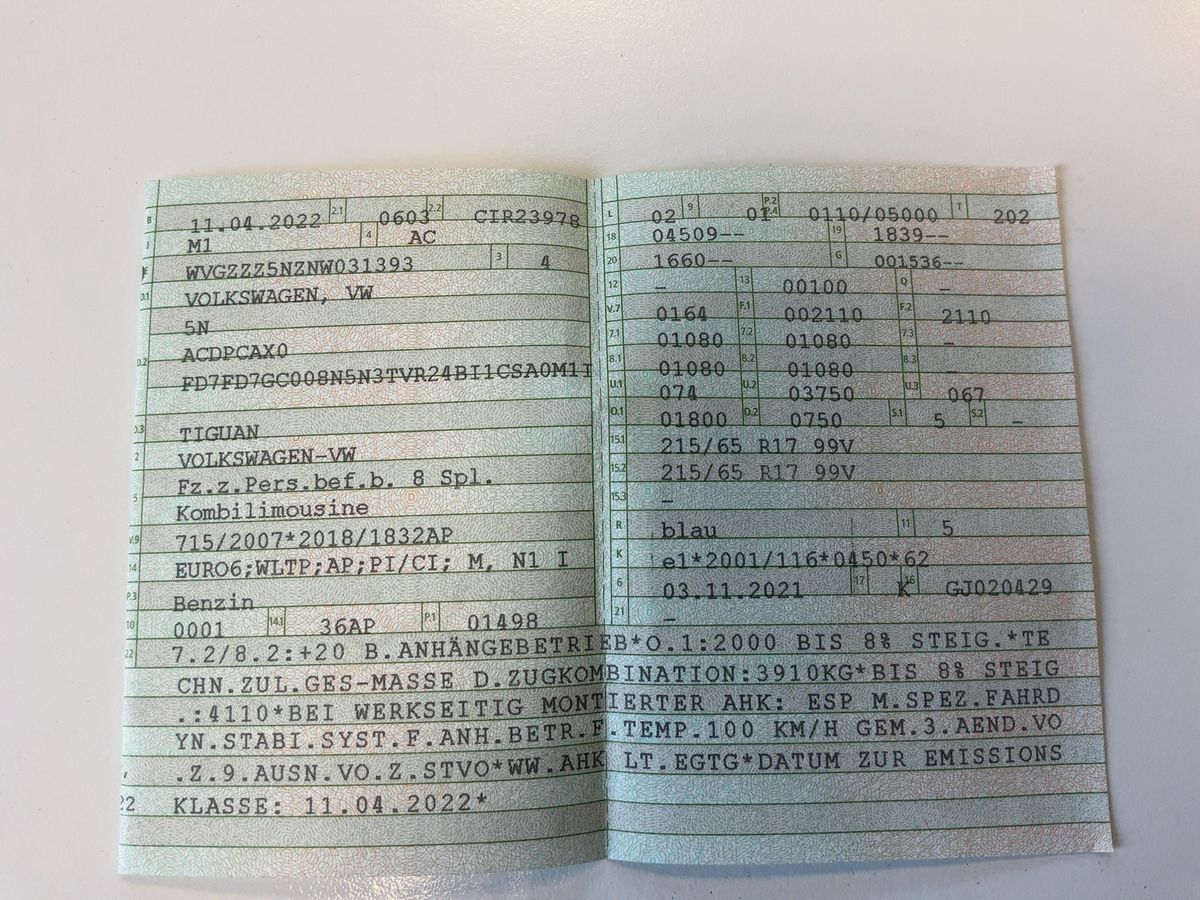 B 11.04.2022 2.1 0603 2.2 CIR23978
J M1 4 AC
E WVGZZZ5NZNW031393 3 4
D.1 VOLKSWAGEN, VW
5N
D.2 ACDPCAX0
FD7FD7GC008N5N3TVR24BI1CSA0M1I
D.3 TIGUAN
2 VOLKSWAGEN-VW
Fz.z.Pers.bef.b. 8 Spl.
5 Kombilimousine
V.9 715/2007*2018/1832AP
14 EURO6;WLTP;AP;PI/CI; M, N1 I
P.3 Benzin
10 0001 14.1 36AP P.1 01498
L 02 9 01 P.2 P.4 0110/05000 T 202
18 04509-- 19 1839--
20 1660-- G 001536--
12 - 13 00100 Q -
V.7 0164 F.1 002110 F.2 2110
7.1 01080 7.2 01080 7.3 -
8.1 01080 8.2 01080 8.3 -
U.1 074 U.2 03750 U.3 067
O.1 01800 O.2 0750 S.1 5 S.2 -
15.1 215/65 R17 99V
15.2 215/65 R17 99V
15.3 -
R blau 11 5
K e1*2001/116*0450*62
6 03.11.2021 17 K 16 GJ020429
21 -
22 7.2/8.2:+20 B.ANHÄNGEBETRIEB*O.1:2000 BIS 8% STEIG.*TE
CHN.ZUL.GES-MASSE D.ZUGKOMBINATION:3910KG*BIS 8% STEIG
.:4110*BEI WERKSEITIG MONTIERTER AHK: ESP M.SPEZ.FAHRD
YN.STABI.SYST.F.ANH.BETR.F.TEMP.100 KM/H GEM.3.AEND.VO
.Z.9.AUSN.VO.Z.STVO*WW.AHK LT.EGTG*DATUM ZUR EMISSIONS
22 KLASSE: 11.04.2022*